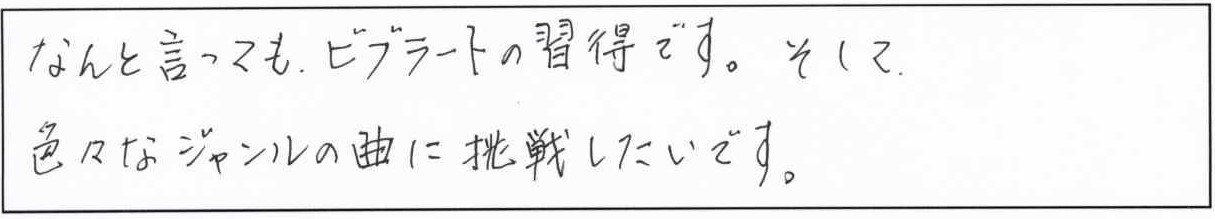 なんと言っても、ビブラートの習得です。そして、
色々なジャンルの曲に挑戦したいです。